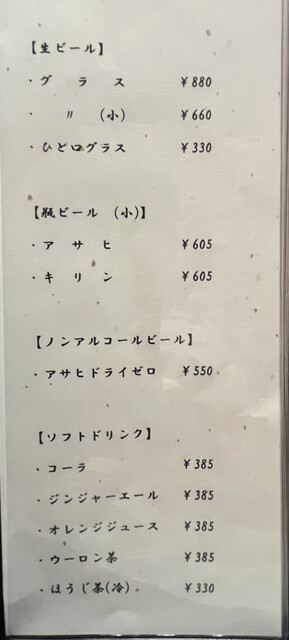 【生ビール】
・グラス ¥880
・〃 (小) ¥660
・ひと口グラス ¥330
【瓶ビール (小)】
・アサヒ ¥605
・キリン ¥605
【ノンアルコールビール】
・アサヒドライゼロ ¥550
【ソフトドリンク】
・コーラ ¥385
・ジンジャーエール ¥385
・オレンジジュース ¥385
・ウーロン茶 ¥385
・ほうじ茶(冷). ¥330